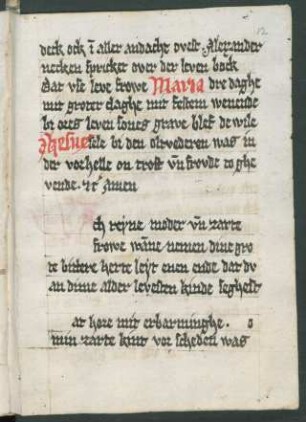 12
deck ock ī aller andacht ovest Alexander
necken spricket over der leven bock
Dat vse leve frowe Maria dre daghe
mit groter claghe mit seltem wenende
bi oers leven sones grave blef de wile
Jhesus sele bi den oltvederen was in
der vorhelle on trost vn̄ frovde to ghe
vende · rc̄ Amen
ch reyne moder vn̄ zarte
frowe wāne nemen dine gro
te bittere herte leyt enen ende dat du
an dime alder levesten kinde seghest
at hore mit erbarminghe · o
min zarte kint vor scheden was